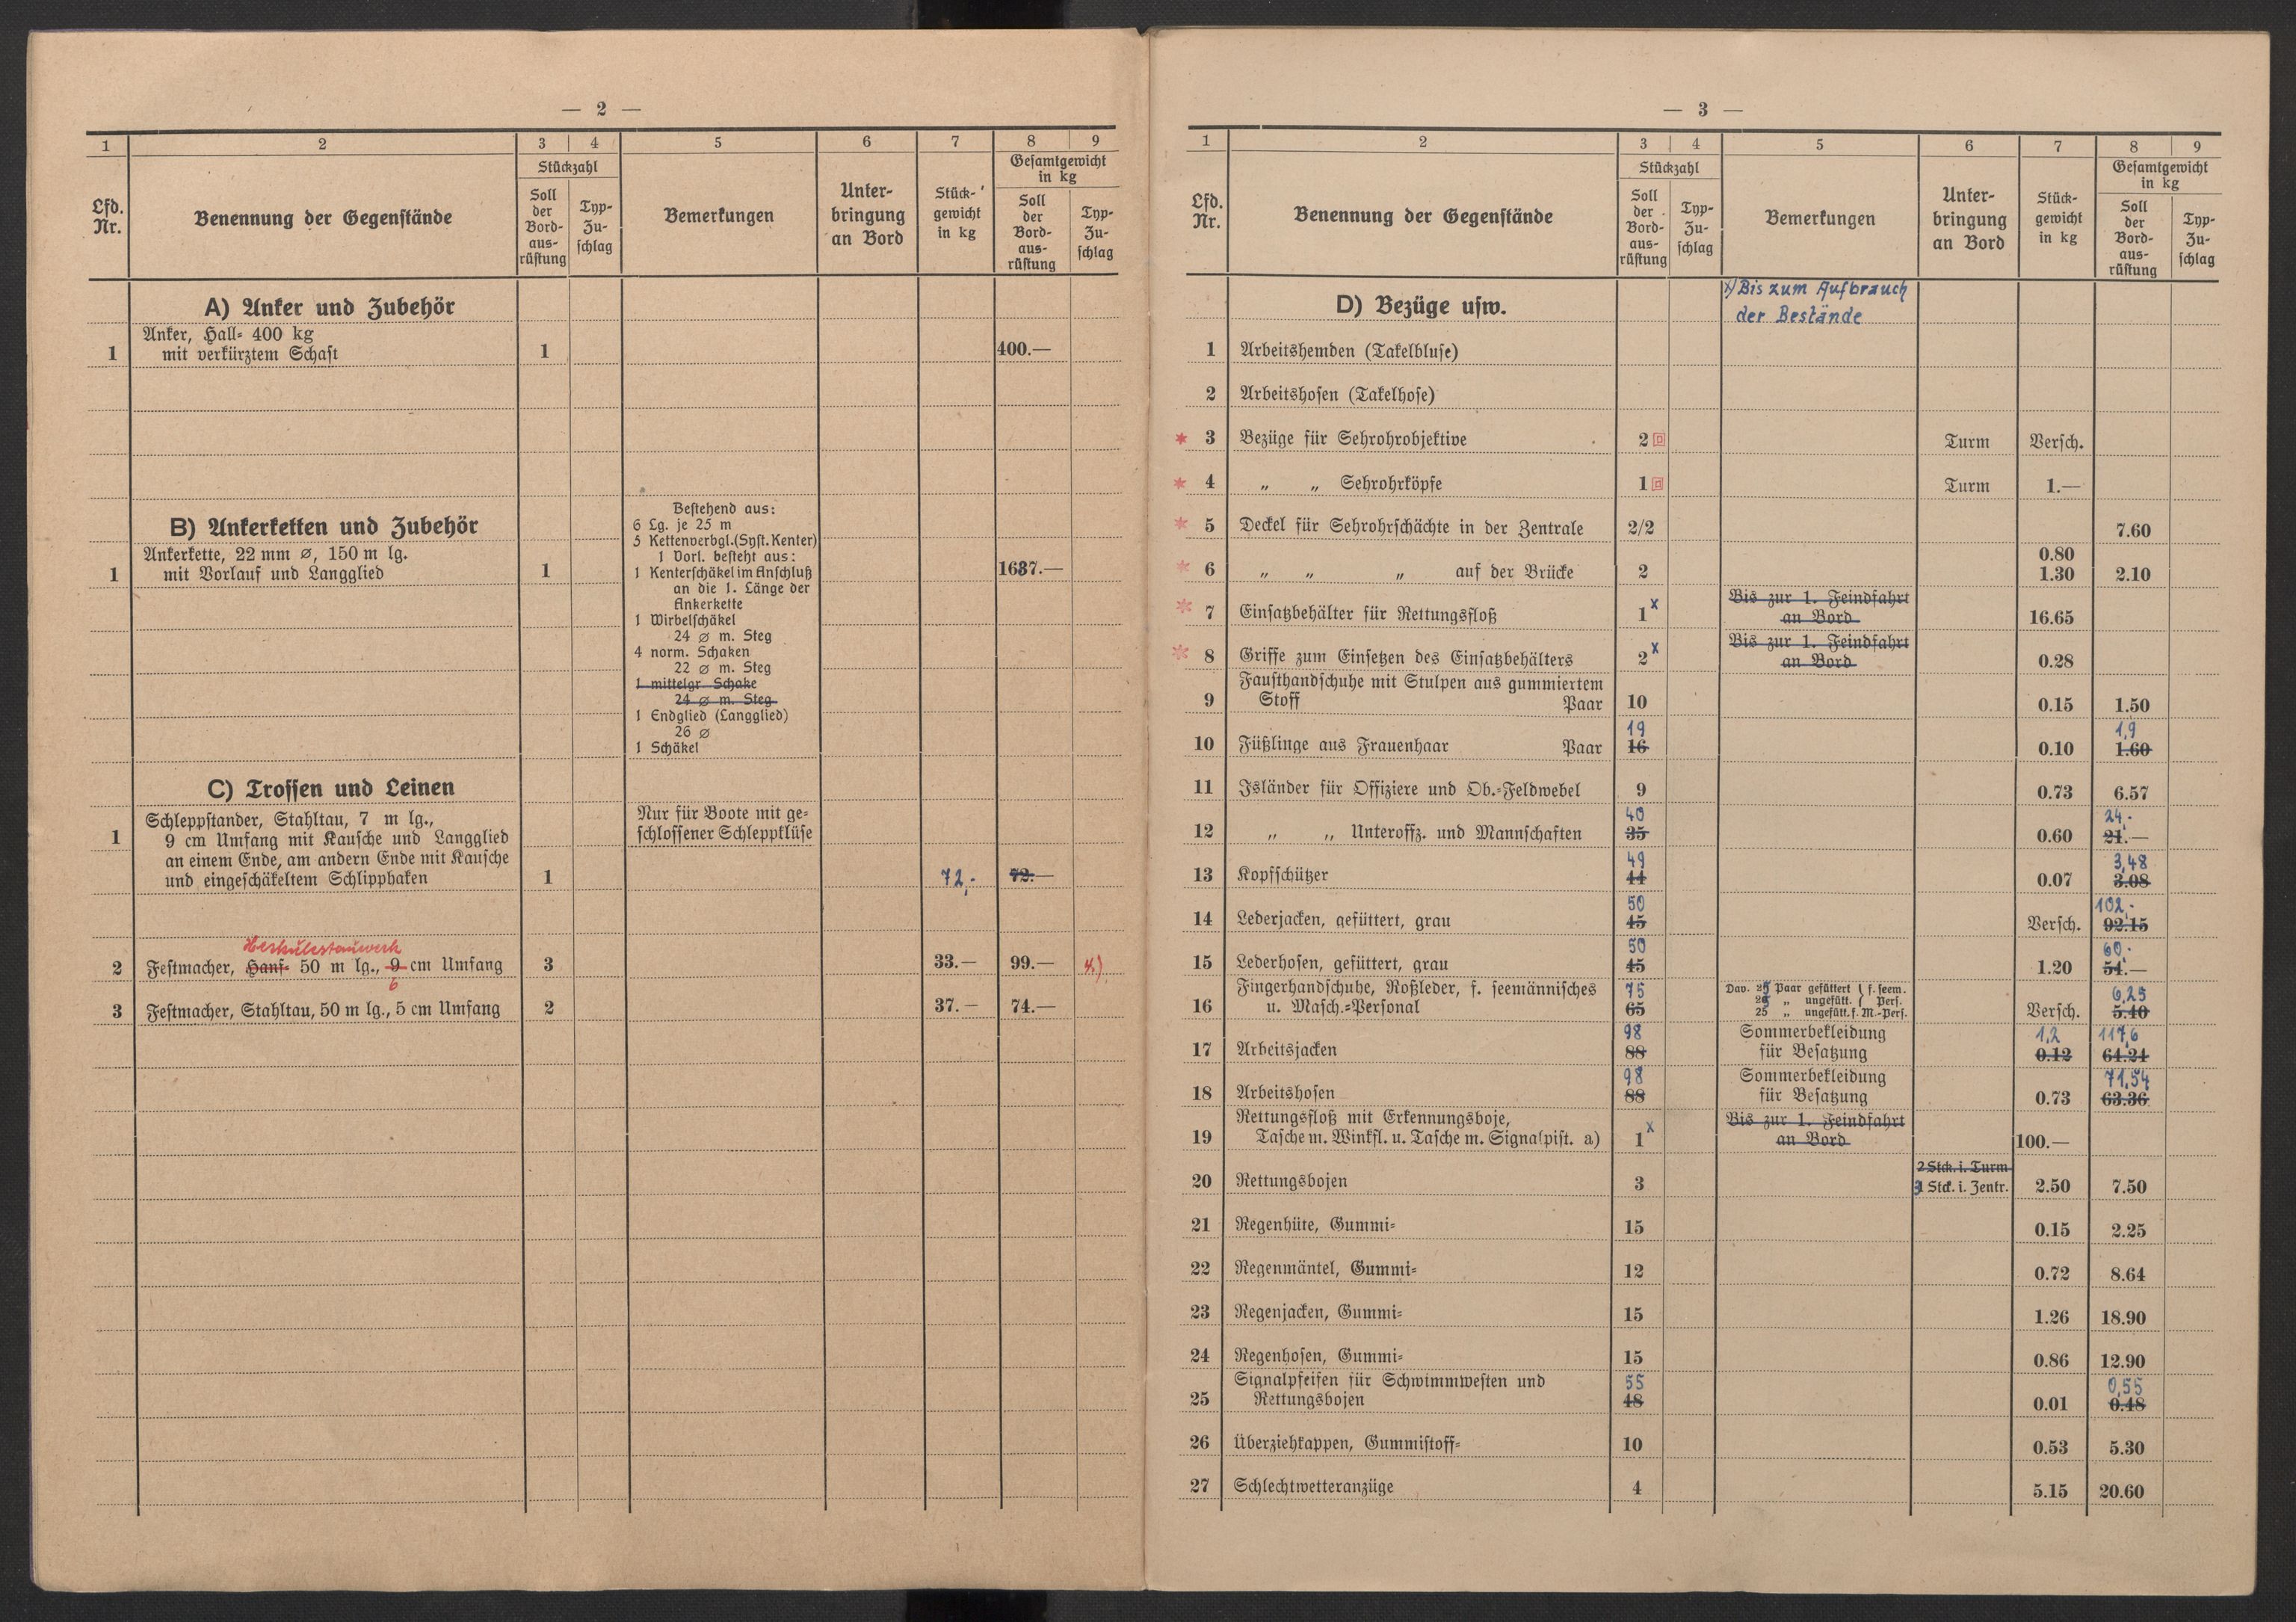 — 2 —
1 2 3 4 5 6 7 8 9
Lfd. Nr.
Benennung der Gegenstände
Stückzahl
Soll der Bord-aus-rüstung
Typ-Zu-schlag
Bemerkungen
Unter-bringung an Bord
Stück-gewicht in kg
Gesamtgewicht in kg
Soll der Bord-aus-rüstung
Typ-Zu-schlag
A) Anker und Zubehör
Anker, Hall- 400 kg
1 mit verkürztem Schaft 1 400.—
B) Ankerketten und Zubehör
Ankerkette, 22 mm ⌀, 150 m lg.
1 mit Vorlauf und Langglied 1 1637.—
Bestehend aus:
6 Lg. je 25 m
5 Kettenverbgl.(Syst. Kenter)
1 Vorl. besteht aus:
1 Kenterschäkel im Anschluß
an die 1. Länge der
Ankerkette
1 Wirbelschäkel
24 ⌀ m. Steg
4 norm. Schaken
22 ⌀ m. Steg
1 mittelgr. Schake
24 ⌀ m. Steg
1 Endglied (Langglied)
26 ⌀
1 Schäkel
C) Trossen und Leinen
1 Schleppstander, Stahltau, 7 m lg.,
9 cm Umfang mit Kausche und Langglied
an einem Ende, am andern Ende mit Kausche
und eingeschäkeltem Schlipphaken 1 72,- 72.—
Nur für Boote mit ge-
schlossener Schleppklüse
Herkulestauwerk
2 Festmacher, Hanf- 50 m lg., 9 cm Umfang 3 33.— 99.— 4.)
6
3 Festmacher, Stahltau, 50 m lg., 5 cm Umfang 2 37.— 74.—
— 3 —
1 2 3 4 5 6 7 8 9
Lfd. Nr.
Benennung der Gegenstände
Stückzahl
Soll der Bord-aus-rüstung
Typ-Zu-schlag
Bemerkungen
Unter-bringung an Bord
Stück-gewicht in kg
Gesamtgewicht in kg
Soll der Bord-aus-rüstung
Typ-Zu-schlag
D) Bezüge usw.
x) Bis zum Aufbrauch
der Bestände
1 Arbeitshemden (Takelbluse)
2 Arbeitshosen (Takelhose)
* 3 Bezüge für Sehrohrobjektive 2 Turm Versch.
* 4 „ „ Sehrohrköpfe 1 Turm 1.—
* 5 Deckel für Sehrohrschächte in der Zentrale 2/2 7.60
0.80
* 6 „ „ „ auf der Brücke 2 1.30 2.10
* 7 Einsatzbehälter für Rettungsfloß 1 x Bis zur 1. Feindfahrt an Bord 16.65
* 8 Griffe zum Einsetzen des Einsatzbehälters 2 x Bis zur 1. Feindfahrt an Bord 0.28
Fausthandschuhe mit Stulpen aus gummiertem
9 Stoff Paar 10 0.15 1.50
19 1,9
10 Füßlinge aus Frauenhaar Paar 16 0.10 1.60
11 Isländer für Offiziere und Ob.-Feldwebel 9 0.73 6.57
40 24,-
12 „ „ Unteroffz. und Mannschaften 35 0.60 21.—
49 3,48
13 Kopfschützer 44 0.07 3.08
50 102,-
14 Lederjacken, gefüttert, grau 45 Versch. 92.15
50 60.-
15 Lederhosen, gefüttert, grau 45 1.20 54.—
Fingerhandschuhe, Roßleder, f. seemännisches 75 6,25
16 u. Masch.-Personal 65 Versch. 5.40
Dav. 25 Paar gefüttert } f. seem.
25 „ ungefütt. } Pers.
25 „ ungefütt. f. M.-Pers.
98 1,2 117,6
17 Arbeitsjacken 88 Sommerbekleidung für Besatzung 0.12 64.24
98 71,54
18 Arbeitshosen 88 Sommerbekleidung für Besatzung 0.73 63.36
Rettungsfloß mit Erkennungsboje,
19 Tasche m. Winkfl. u. Tasche m. Signalpist. a) 1 x Bis zur 1. Feindfahrt an Bord 100.—
2 Stck. i. Turm
20 Rettungsbojen 3 3 Stck. i. Zentr. 2.50 7.50
21 Regenhüte, Gummi- 15 0.15 2.25
22 Regenmäntel, Gummi- 12 0.72 8.64
23 Regenjacken, Gummi- 15 1.26 18.90
24 Regenhosen, Gummi- 15 0.86 12.90
Signalpfeifen für Schwimmwesten und 55 0,55
25 Rettungsbojen 48 0.01 0.48
26 Überziehkappen, Gummistoff- 10 0.53 5.30
27 Schlechtwetteranzüge 4 5.15 20.60